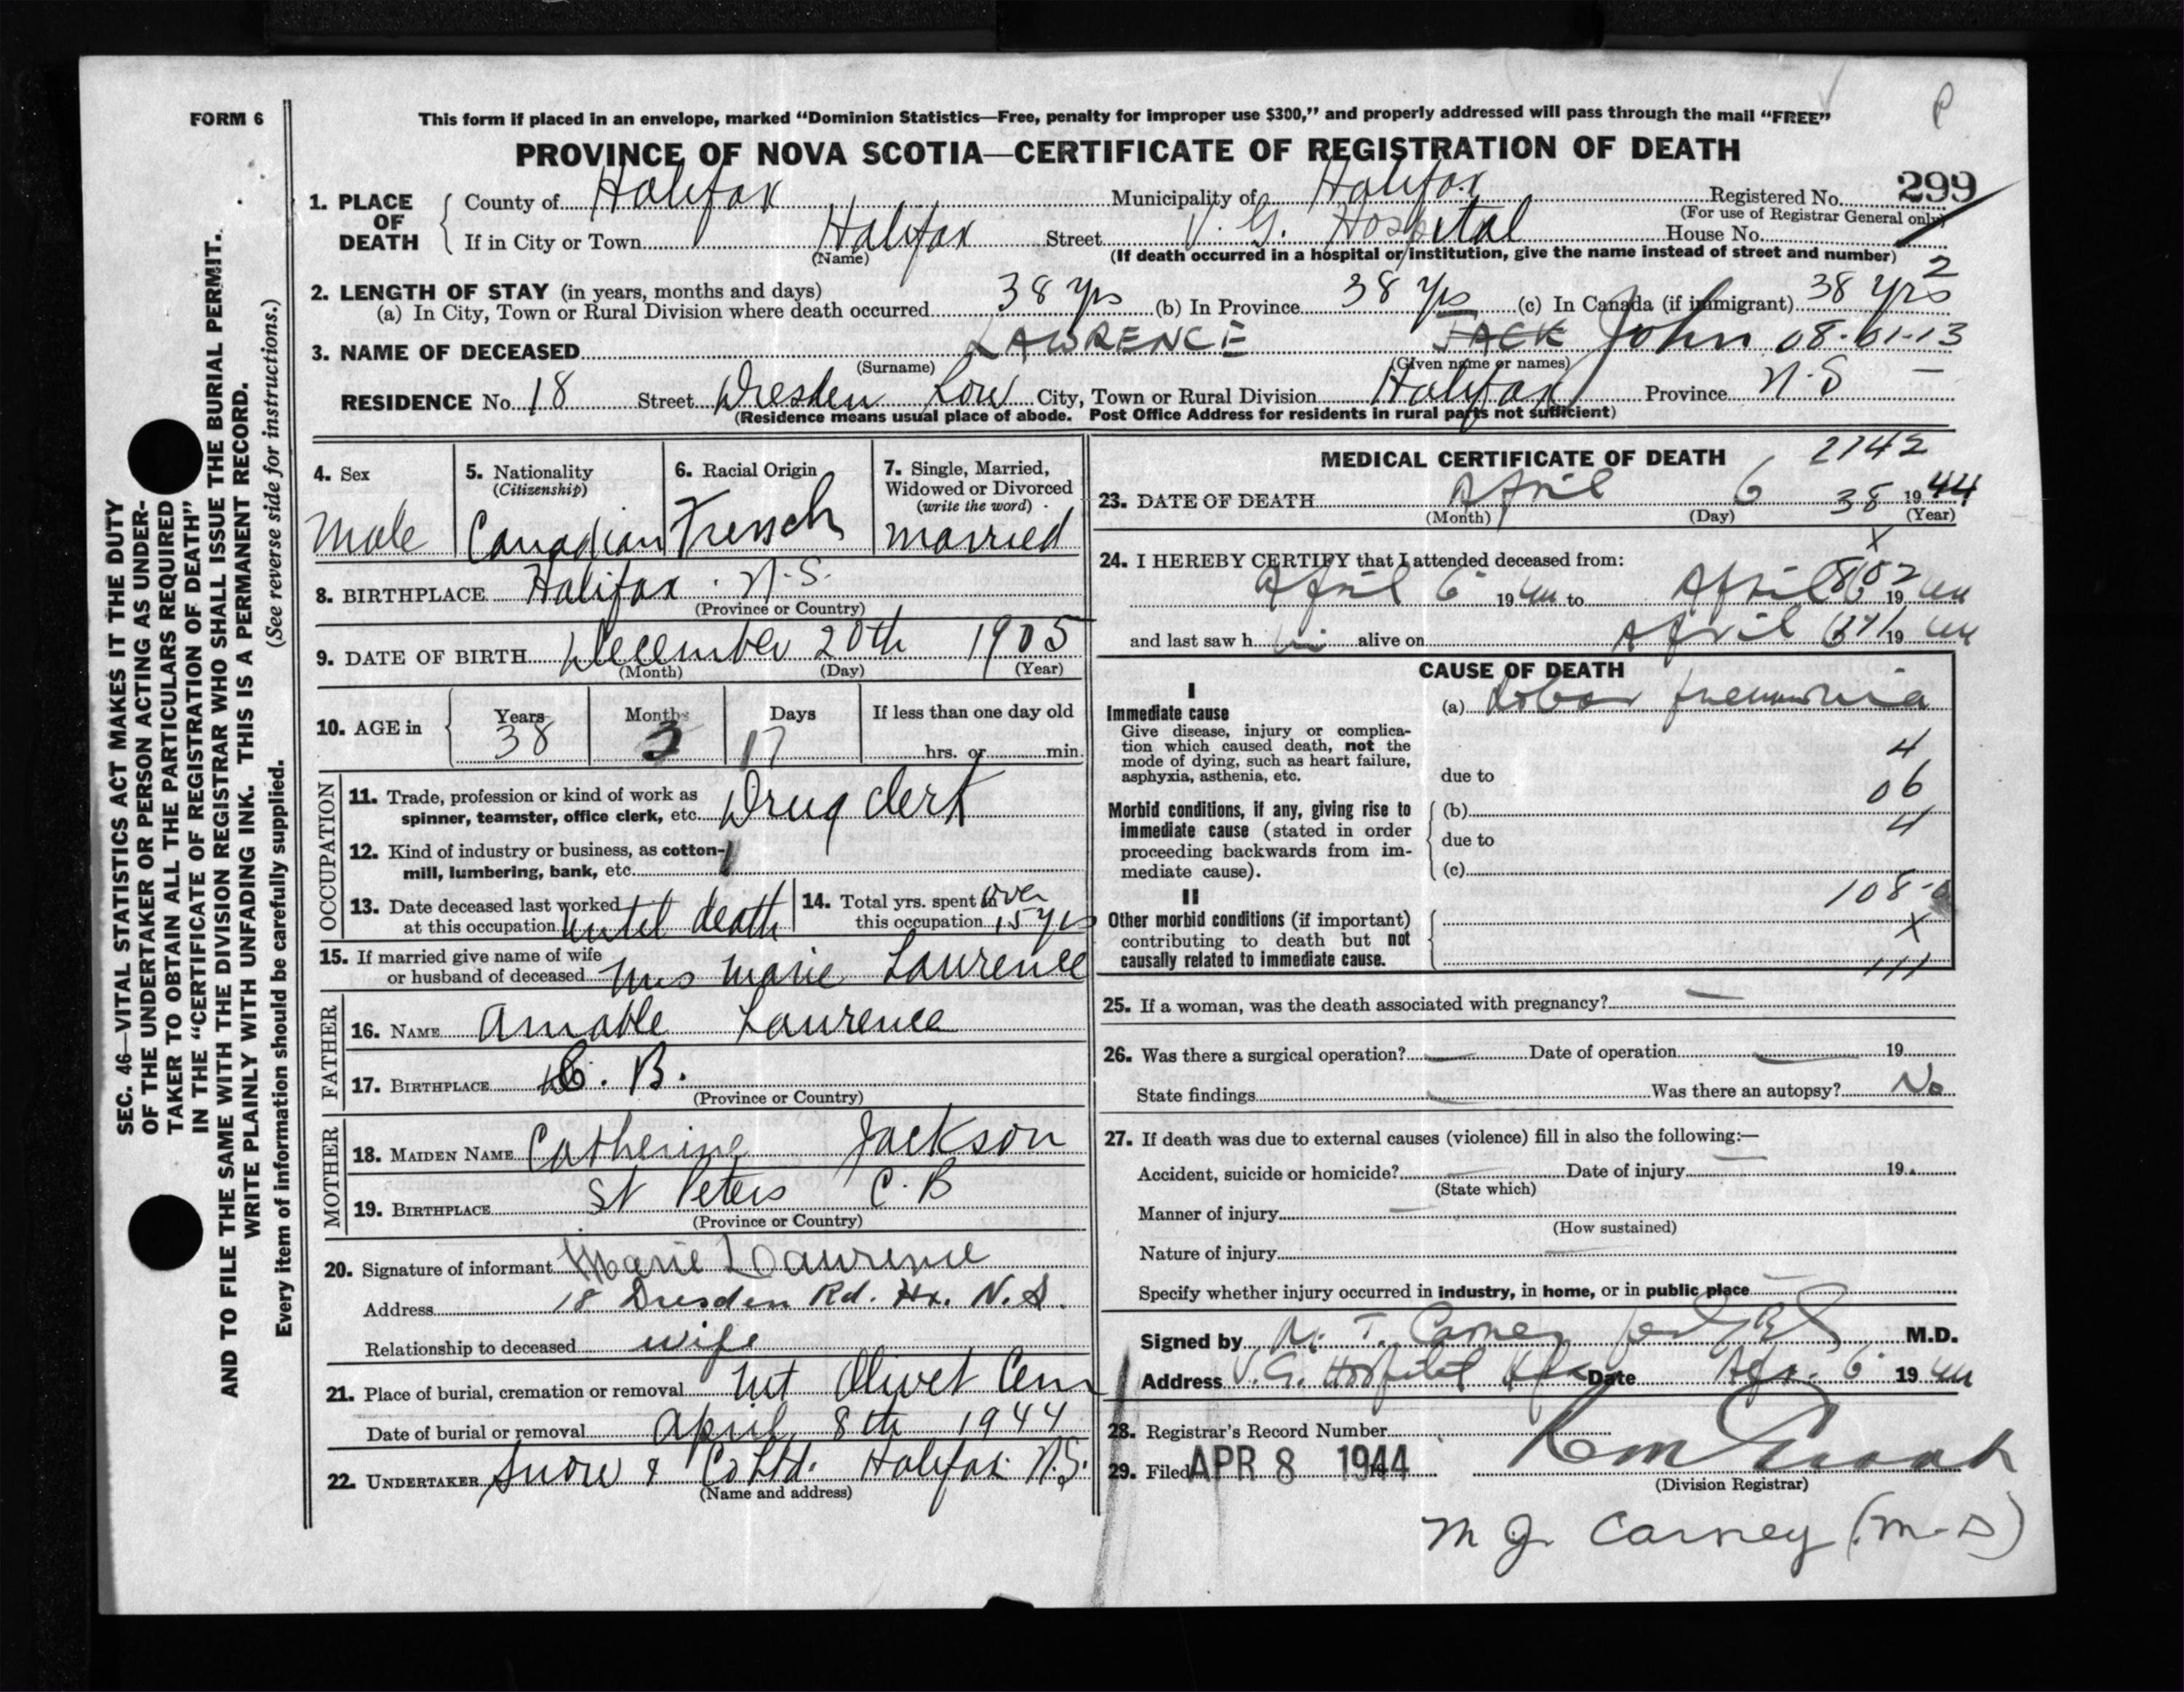 FORM 6
This form if placed in an envelope, marked "Dominion Statistics—Free, penalty for improper use $300," and properly addressed will pass through the mail "FREE"
P
PROVINCE OF NOVA SCOTIA—CERTIFICATE OF REGISTRATION OF DEATH
1. PLACE OF DEATH
County of Halifax Municipality of Halifax Registered No. 299
(For use of Registrar General only)
If in City or Town Halifax Street V. G. Hospital House No.
(Name) (If death occurred in a hospital or institution, give the name instead of street and number)
2
2. LENGTH OF STAY (in years, months and days)
(a) In City, Town or Rural Division where death occurred 38 yrs (b) In Province 38 yrs (c) In Canada (if immigrant) 38 yrs
3. NAME OF DECEASED LAWRENCE JACK John 08-01-13
(Surname) (Given name or names)
RESIDENCE No. 18 Street Dresden Row City, Town or Rural Division Halifax Province N.S
(Residence means usual place of abode. Post Office Address for residents in rural parts not sufficient)
4. Sex
Male
5. Nationality
(Citizenship)
Canadian
6. Racial Origin
French
7. Single, Married,
Widowed or Divorced
(write the word)
married
8. BIRTHPLACE Halifax N.S.
(Province or Country)
9. DATE OF BIRTH December 20th 1905
(Month) (Day) (Year)
10. AGE in
Years Months Days If less than one day old
38 3 17 hrs. or min.
OCCUPATION
11. Trade, profession or kind of work as
spinner, teamster, office clerk, etc. Drug clerk
12. Kind of industry or business, as cotton-
mill, lumbering, bank, etc.
13. Date deceased last worked
at this occupation until death
14. Total yrs. spent in over
this occupation 15 yrs
15. If married give name of wife
or husband of deceased Mrs Marie Laurence
FATHER
16. NAME Amable Laurence
17. BIRTHPLACE C. B.
(Province or Country)
MOTHER
18. MAIDEN NAME Catherine Jackson
19. BIRTHPLACE St Peters C. B
(Province or Country)
20. Signature of informant Marie Lawrence
Address 18 Dresden Rd. Hx. N.S.
Relationship to deceased wife
21. Place of burial, cremation or removal Mt Olivet Cem
Date of burial or removal April 8th 1944
22. UNDERTAKER Snow & Co Ltd. Halifax N.S.
(Name and address)
MEDICAL CERTIFICATE OF DEATH 2142
23. DATE OF DEATH April 6 38 1944
(Month) (Day) (Year)
X
24. I HEREBY CERTIFY that I attended deceased from:
April 6 1944 to April 6 1944
802
and last saw h im alive on April 6 1944
CAUSE OF DEATH
I
Immediate cause
Give disease, injury or complica-
tion which caused death, not the
mode of dying, such as heart failure,
asphyxia, asthenia, etc.
(a) Lobar pneumonia
4
due to
06
Morbid conditions, if any, giving rise to
immediate cause (stated in order
proceeding backwards from im-
mediate cause).
(b)
4
due to
(c)
108-
II
Other morbid conditions (if important)
contributing to death but not
causally related to immediate cause.
X
111
25. If a woman, was the death associated with pregnancy? —
26. Was there a surgical operation? — Date of operation — 19
State findings — Was there an autopsy? No
27. If death was due to external causes (violence) fill in also the following:—
Accident, suicide or homicide? — Date of injury — 19
(State which)
Manner of injury —
(How sustained)
Nature of injury —
Specify whether injury occurred in industry, in home, or in public place —
Signed by Carney M.D.
Address V.G. Hospital Hfx Date Apr. 6 1944
28. Registrar's Record Number
29. Filed APR 8 1944
(Division Registrar)
M J. Carney (M-D)
SEC. 46—VITAL STATISTICS ACT MAKES IT THE DUTY
OF THE UNDERTAKER OR PERSON ACTING AS UNDER-
TAKER TO OBTAIN ALL THE PARTICULARS REQUIRED
IN THE "CERTIFICATE OF REGISTRATION OF DEATH"
AND TO FILE THE SAME WITH THE DIVISION REGISTRAR WHO SHALL ISSUE THE BURIAL PERMIT.
WRITE PLAINLY WITH UNFADING INK. THIS IS A PERMANENT RECORD.
Every item of information should be carefully supplied. (See reverse side for instructions.)